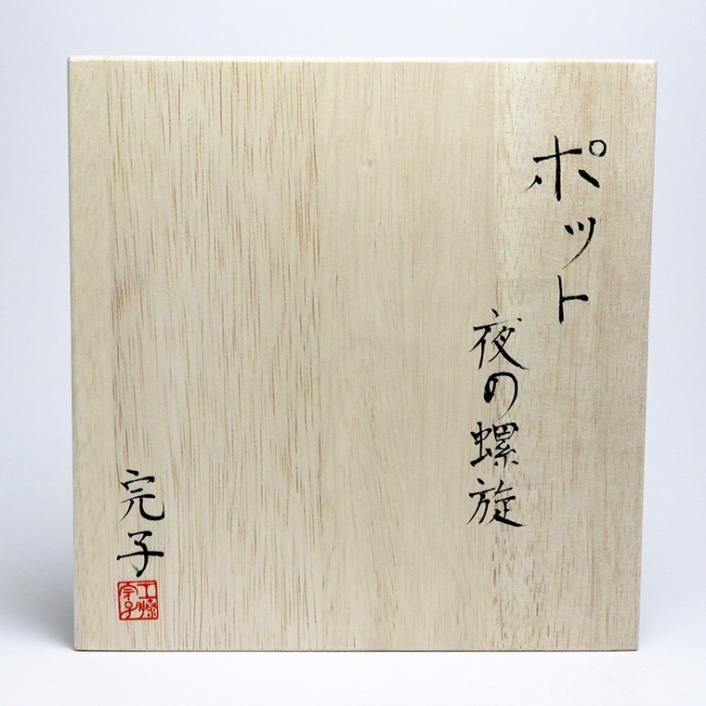 ポット
夜の螺旋
完子